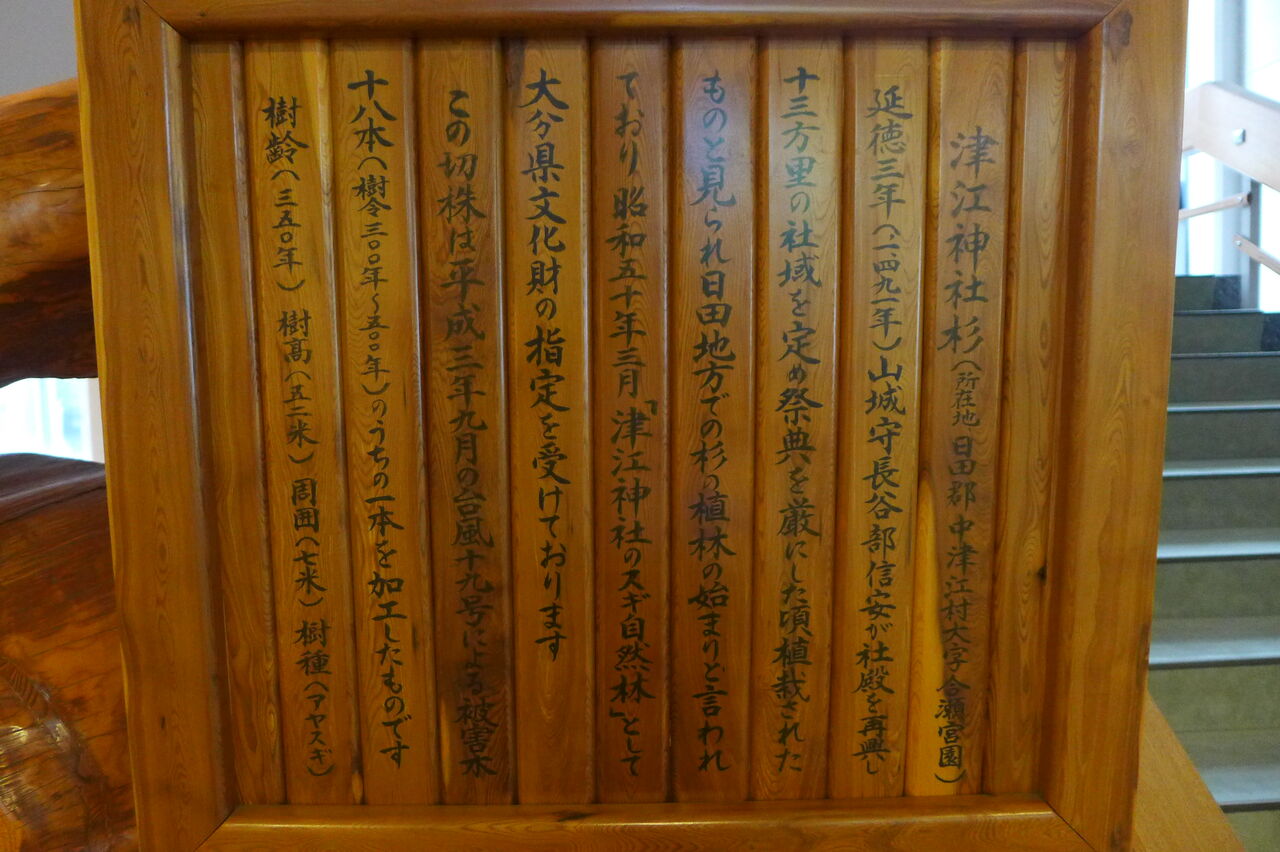 津江神社杉(所在地日田郡中津江村大字合瀬宮園)
延徳三年(一、四九一年)山城守長谷部信安が社殿を再興し
十三方里の社域を定め祭典を厳にした頃植栽された
ものと見られ日田地方での杉の植林の始まりと言われ
ており昭和五十年三月「津江神社のスギ自然林」として
大分県文化財の指定を受けております
この切株は平成三年九月の台風十九号による被害木
十八本(樹令三〇〇年~五〇〇年)のうちの一本を加工したものです
樹齢(三五〇年)樹高(五二米)周囲(七米)樹種(アヤスギ)